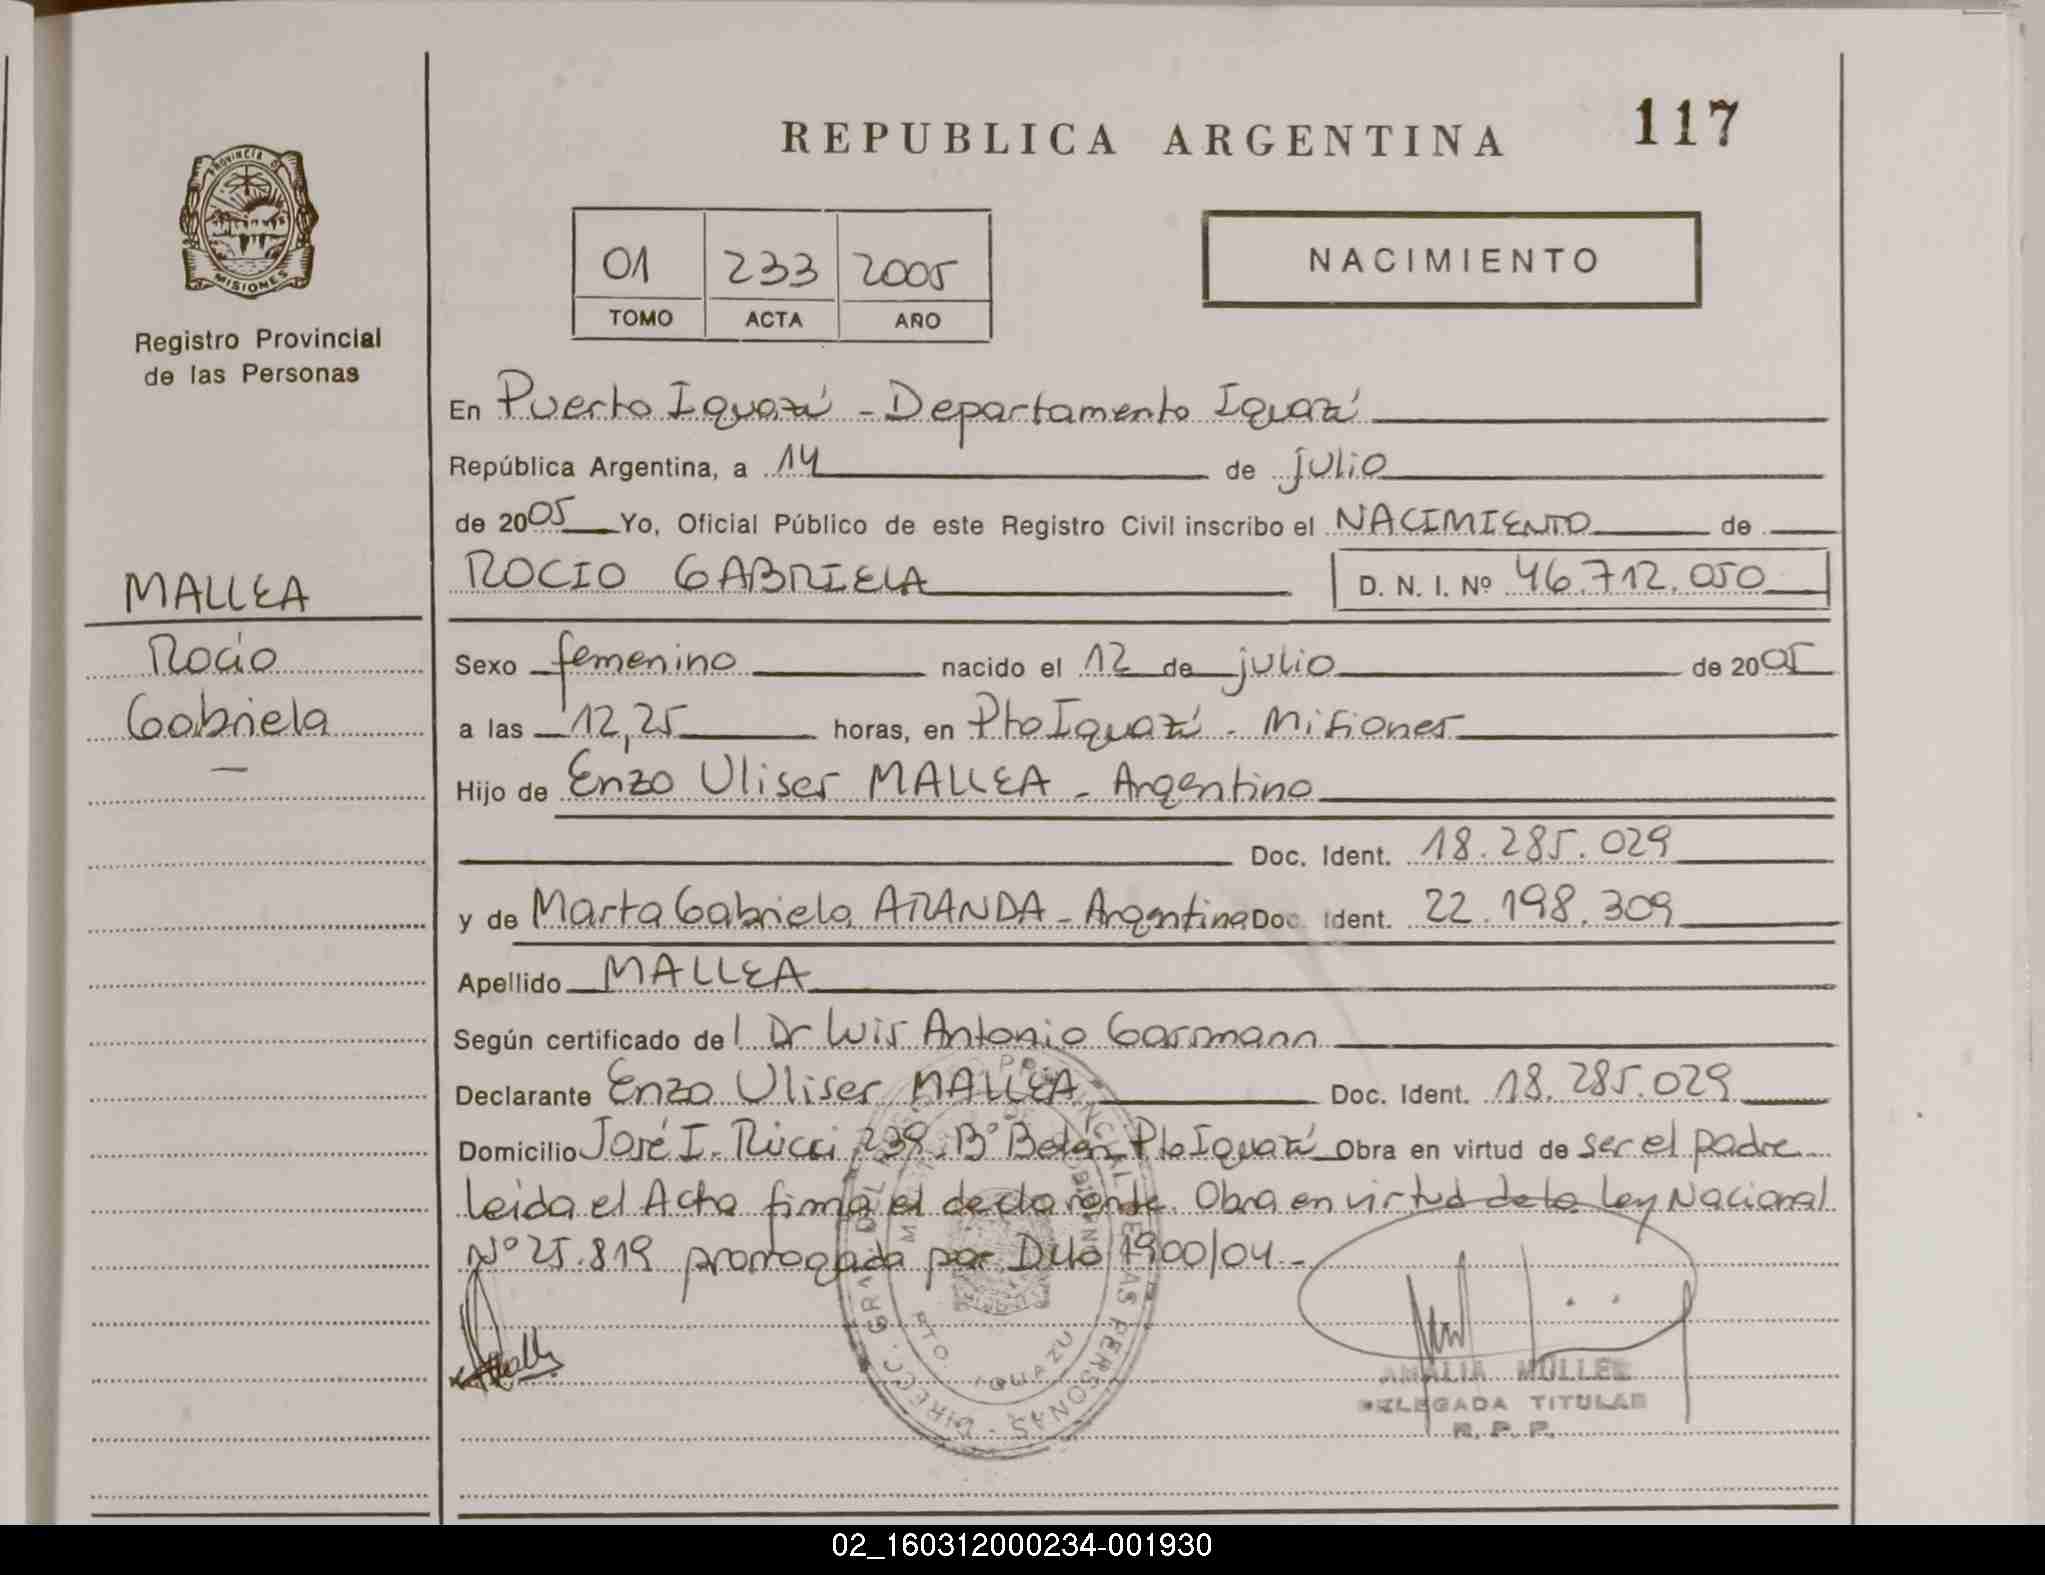 REPUBLICA ARGENTINA 117
PROVINCIA DE
MISIONES
Registro Provincial
de las Personas
01 233 2005
TOMO ACTA AÑO
NACIMIENTO
En Puerto Iguazú - Departamento Iguazú
República Argentina, a 14 de julio
de 2005 Yo, Oficial Público de este Registro Civil inscribo el NACIMIENTO de
ROCIO GABRIELA D. N. I. Nº 46.712.050
MALLEA
Rocío
Gabriela
Sexo femenino nacido el 12 de julio de 2005
a las 12,25 horas, en Pto Iguazú - Misiones
Hijo de Enzo Ulises MALLEA - Argentino
Doc. Ident. 18.285.029
y de Marta Gabriela ARANDA - Argentina Doc. Ident. 22.198.309
Apellido MALLEA
Según certificado del Dr Luis Antonio Garmann
Declarante Enzo Ulises MALLEA Doc. Ident. 18.285.029
Domicilio José I. Ricci 239 Bº Belén Pto Iguazú Obra en virtud de ser el padre
Leída el Acta firma el declarante. Obra en virtud de la Ley Nacional
Nº 25.819 prorrogada por Dcto 1900/04 -
PTO. IGUAZU
AMALIA MULLER
DELEGADA TITULAR
R. P. P.
02_160312000234-001930